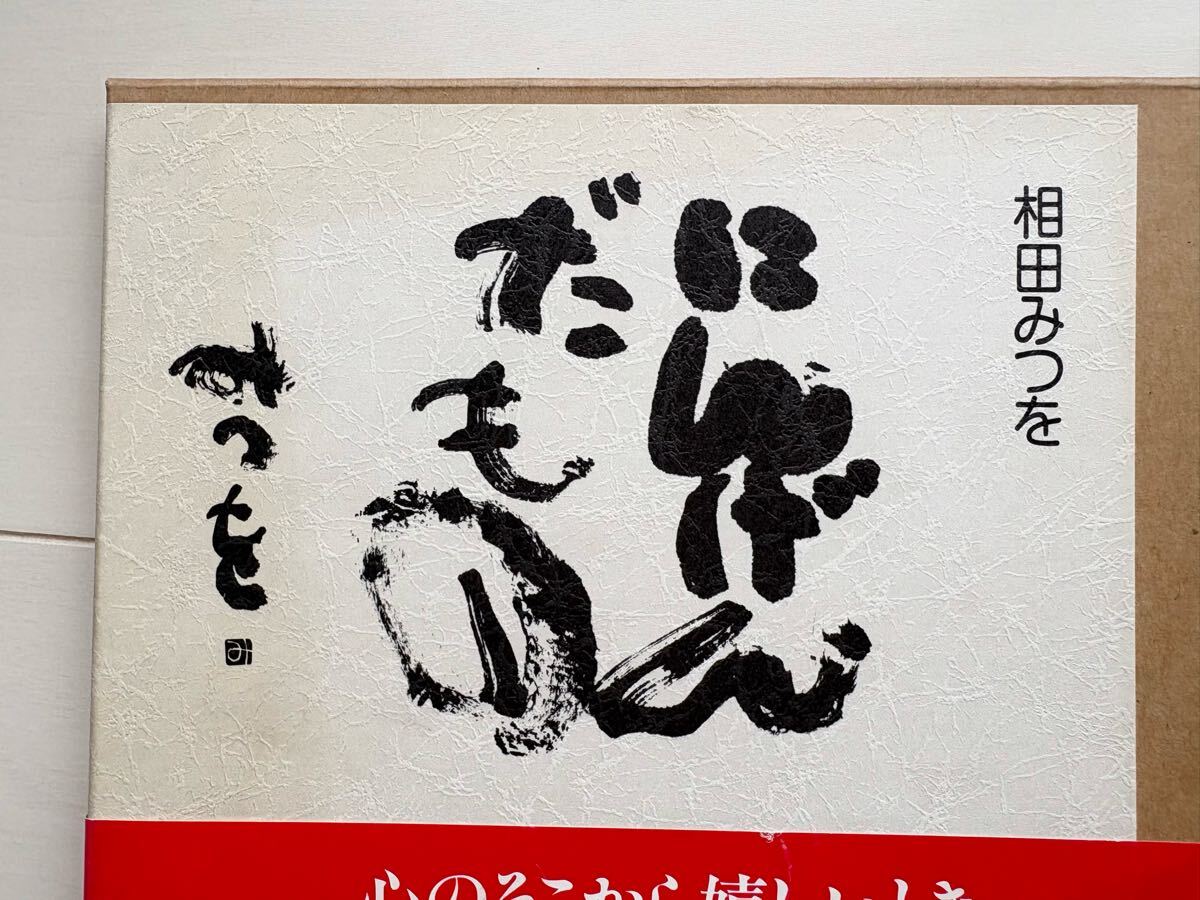 相田みつを
にんげん
だもの
みつを
み
心のそこから嬉しいとき